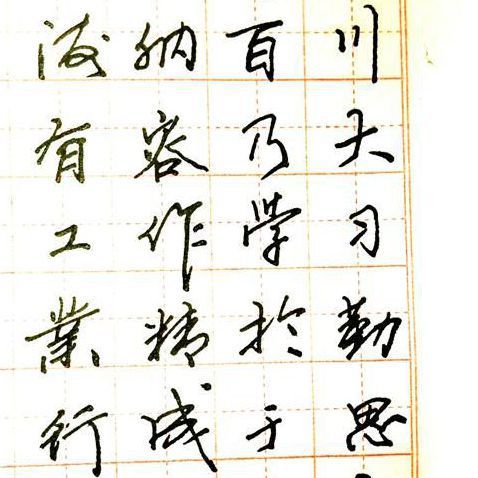 海纳百川
有容乃大
工作學习
業精於勤
行成于思